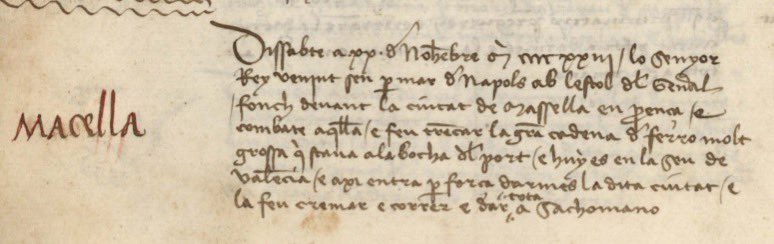 Macella
Dissabte a xx. d Nohebre m cccc xxiii / lo senyor
Rey venint sen p mar d Napols ab lestol dl General
fonch devant la ciutat de Massella en proença / e
combate aqlla / e feu trencar la gran cadena d ferro molt
grossa q stava ala bocha dl port / e huy es en la seu de
Valencia / e axi entra p força darmes la dita ciutat / e
la feu cremar e correr e dar tota a sachomano